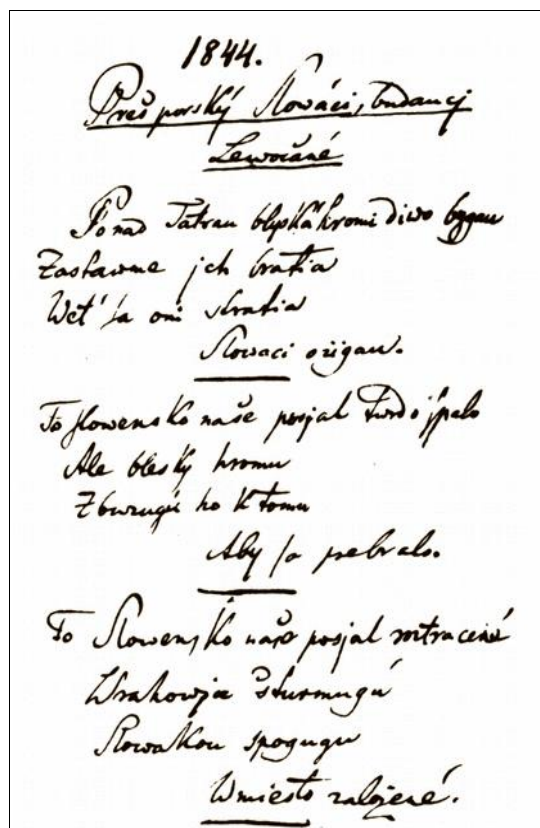 1844.
Prešporský Slowáci, budaucj
Lewočané
Ponad Tatrau blyská hromi diwo bygau
Zastawme jch bratia
Weť sa oni stratia
Slowaci ožigau.
To slowensko naše posjal twrdo spalo
Ale bleský hromu
Zbuzugú ho k tomu
Aby sa prebralo.
To Slowensko naše posjal
Wrahowja šturmugú
Slowákou spogugu
W miesto založené.